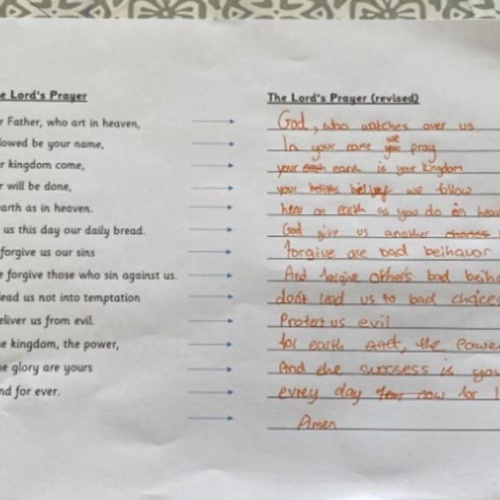 e Lord's Prayer
r Father, who art in heaven,
lowed be your name,
r kingdom come,
r will be done,
earth as in heaven.
us this day our daily bread.
forgive us our sins
e forgive those who sin against us.
lead us not into temptation
eliver us from evil.
he kingdom, the power,
he glory are yours
nd for ever.
The Lord's Prayer (revised)
God, who watches over us
In your name we pray
your earth is your kingdom
your belifes we follow
here on earth as you do on hea
God give us another
forgive are bad beihavor
And forgive other's bad beih
don't lead us to bad choice
Protect us evil
for earth and, the Power
And the success is you
evrey day now for
Amen